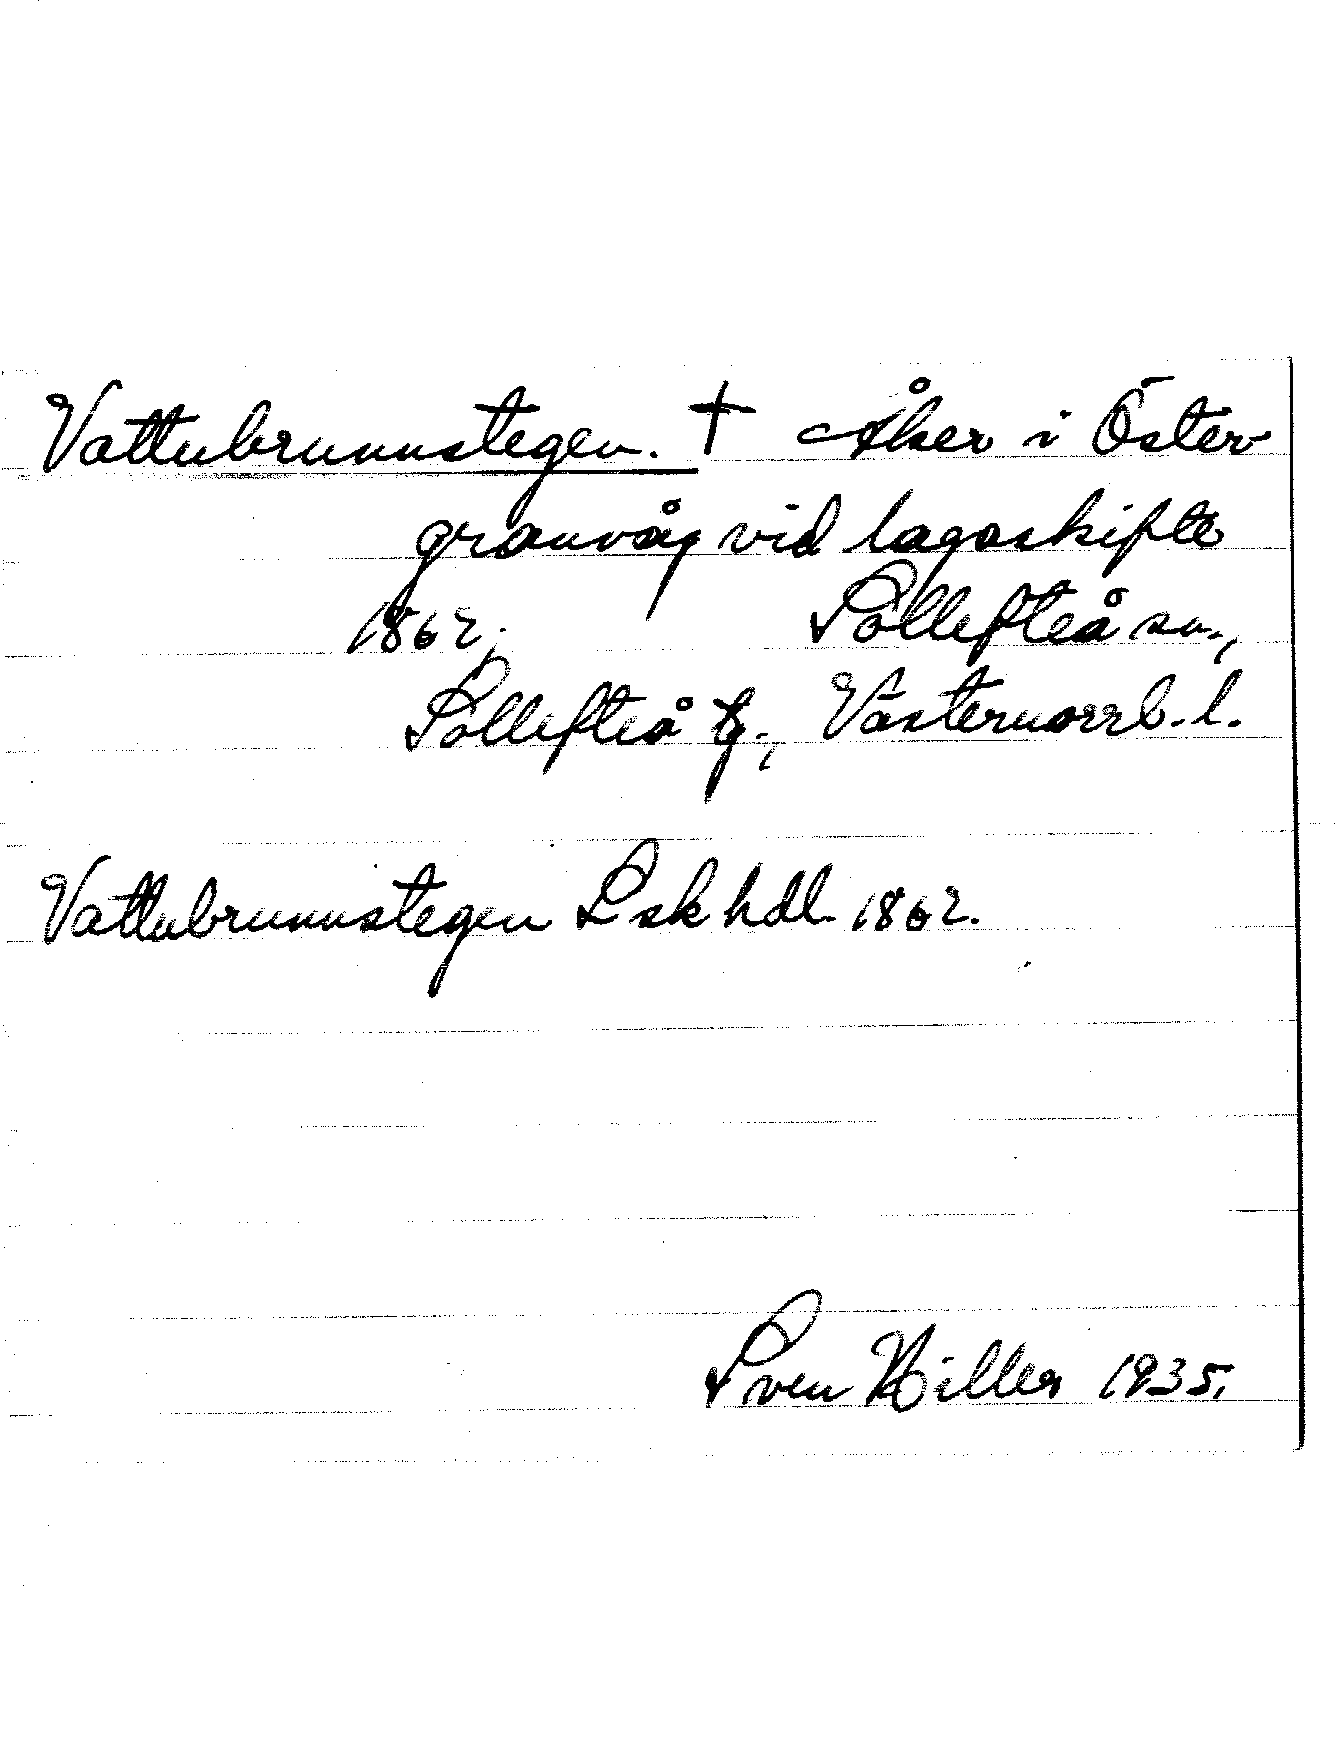 Vattubrunnstegen. † Åker i Öster
granvåg vid lagaskifte
1862. Sollefteå sn.,
Sollefteå tg., Västernorrl. l.
Vattubrunnstegen Lsk hdl 1862.
Sven Hiller 1935.